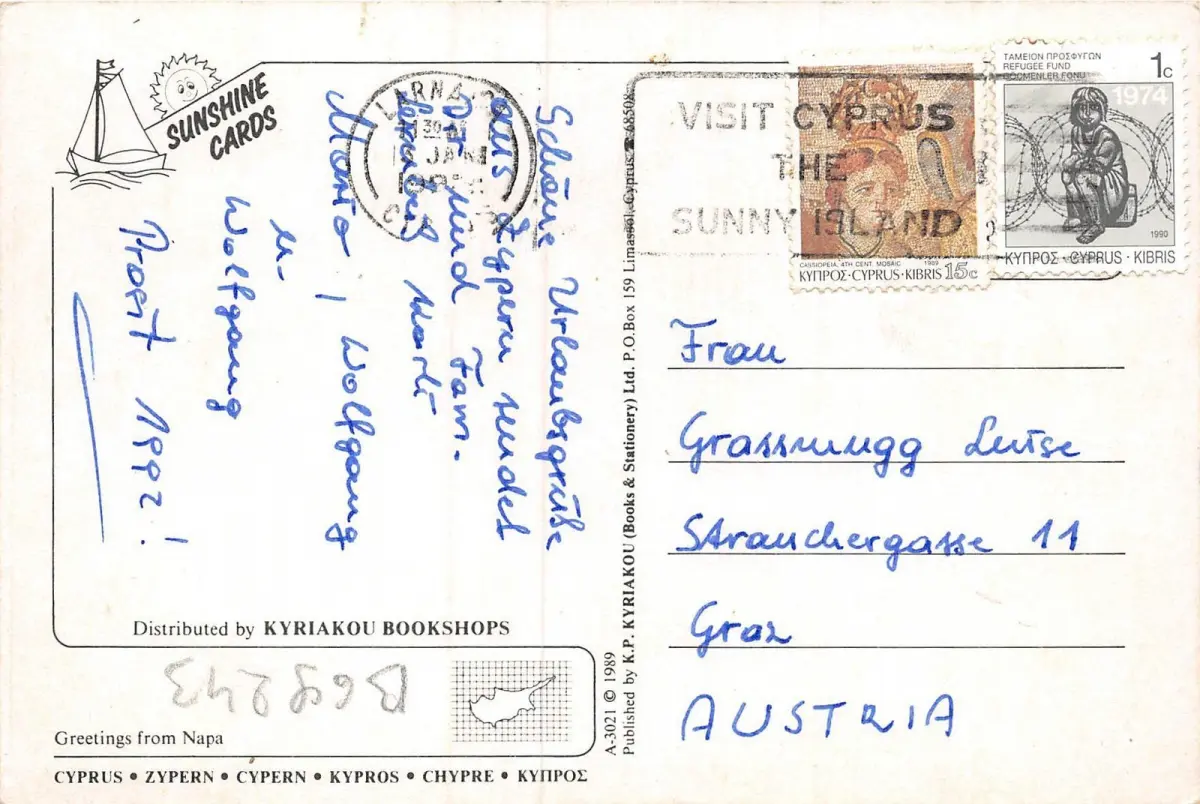 SUNSHINE
CARDS
Schöne Urlaubsgrüße
aus Zypern sendet
Dir und Fam.
Maria, Wolfgang
u.
Wolfgang
Prosit 1992!
Distributed by KYRIAKOU BOOKSHOPS
B68243
Greetings from Napa
CYPRUS • ZYPERN • CYPERN • KYPROS • CHYPRE • ΚΥΠΡΟΣ
A-3021 © 1989
Published by K.P. KYRIAKOU (Books & Stationery) Ltd. P.O.Box 159 Limassol, Cyprus.
LARNACA
JAN
VISIT CYPRUS
THE
SUNNY ISLAND
CASSIOPEIA, 4TH CENT. MOSAIC 1989
ΚΥΠΡΟΣ·CYPRUS·KIBRIS 15c
ΤΑΜΕΙΟΝ ΠΡΟΣΦΥΓΩΝ
REFUGEE FUND
GÖÇMENLER FONU
1c
1974
1990
ΚΥΠΡΟΣ · CYPRUS · KIBRIS
Frau
Grassmugg Luise
Strauchergasse 11
Graz
AUSTRIA